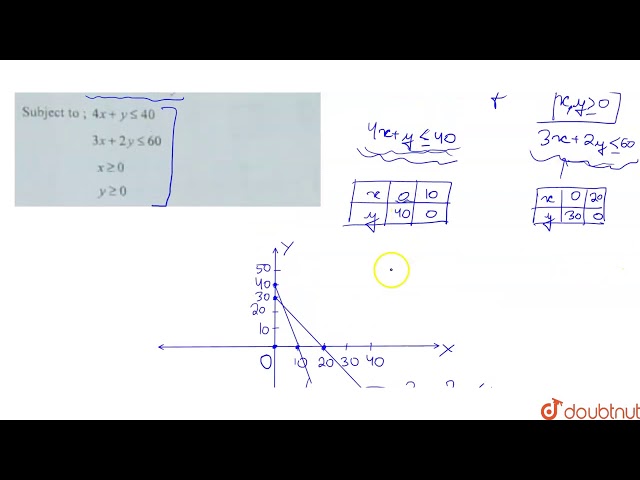 Subject to ; 4x + y ≤ 40
3x + 2y ≤ 60
x ≥ 0
y ≥ 0
x, y ≥ 0
4x + y ≤ 40
3x + 2y ≤ 60
x 0 10
y 40 0
x 0 20
y 30 0
Y
50
40
30
20
10
0 10 20 30 40 X
doubtnut